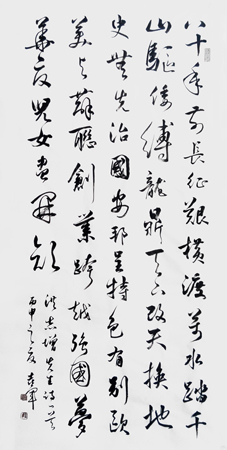 八十年前長征艱橫渡萬水踏千
山驅倭縛龍鼎天下改天換地
史無先治國安邦呈特色有別歐
美与蘇聯創業跨越強國夢
華夏兒女盡開顏
先生詩一首
丙申之夏